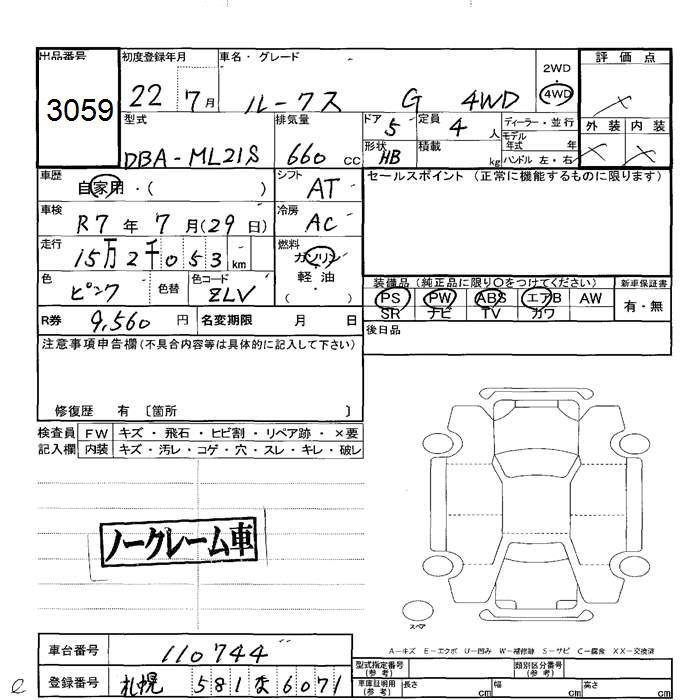 出品番号 初度登録年月 車名・グレード 2WD・ 評価点
3059 22 7月 ルークス G 4WD 4WD
外装 内装
型式 排気量 ドア 5 定員 4人 ディーラー・並行
モデル年式 年
DBA-ML21S 660 cc 形状 HB 積載 kg ハンドル 左・右
車歴 自家用・( ) シフト AT セールスポイント (正常に機能するものに限ります)
車検 R7年 7月(29日) 冷房 AC
走行 15万2千053km 燃料 ガソリン
軽油
( )
色 ピンク 色替 色コード ZLV 装備品(純正品に限り○をつけてください) 新車保証書
PS PW ABS エアB AW 有・無
SR ナビ TV カワ
R券 9,560円 名変期限 月 日 後日品
注意事項申告欄(不具合内容等は具体的に記入して下さい)
修復歴 有 〔箇所 〕
検査員 FW キズ・飛石・ヒビ割・リペア跡・×要
記入欄 内装 キズ・汚レ・コゲ・穴・スレ・キレ・破レ
ノークレーム車
スペア
A-キズ E-エクボ U-凹み W-補修跡 S-サビ C-腐食 XX-交換済
車台番号 110744 型式指定番号(参考) 類別区分番号(参考)
登録番号 札幌 581 6071 車庫証明用(参考) 長さ cm 幅 cm 高さ cm